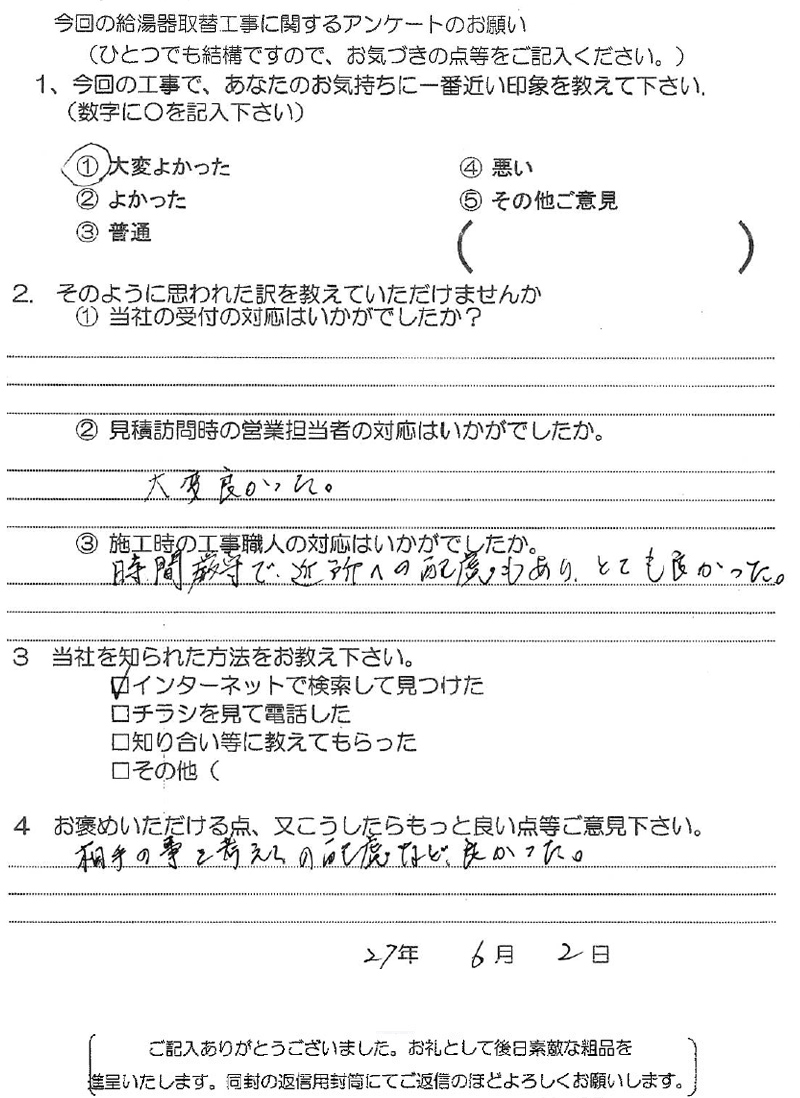 今回の給湯器取替工事に関するアンケートのお願い
（ひとつでも結構ですので、お気づきの点等をご記入ください。）
1、今回の工事で、あなたのお気持ちに一番近い印象を教えて下さい.
（数字に〇を記入下さい）
① 大変よかった
② よかった
③ 普通
④ 悪い
⑤ その他ご意見
（　　　）
2. そのように思われた訳を教えていただけませんか
① 当社の受付の対応はいかがでしたか？
② 見積訪問時の営業担当者の対応はいかがでしたか。
大変良かった。
③ 施工時の工事職人の対応はいかがでしたか。
時間厳守で、近所への配慮もあり、とても良かった。
3 当社を知られた方法をお教え下さい。
☑インターネットで検索して見つけた
□チラシを見て電話した
□知り合い等に教えてもらった
□その他（
4 お褒めいただける点、又こうしたらもっと良い点等ご意見下さい。
相手の事を考えの配慮など、良かった。
27年 6月 2日
ご記入ありがとうございました。お礼として後日素敵な粗品を
進呈いたします。同封の返信用封筒にてご返信のほどよろしくお願いします。